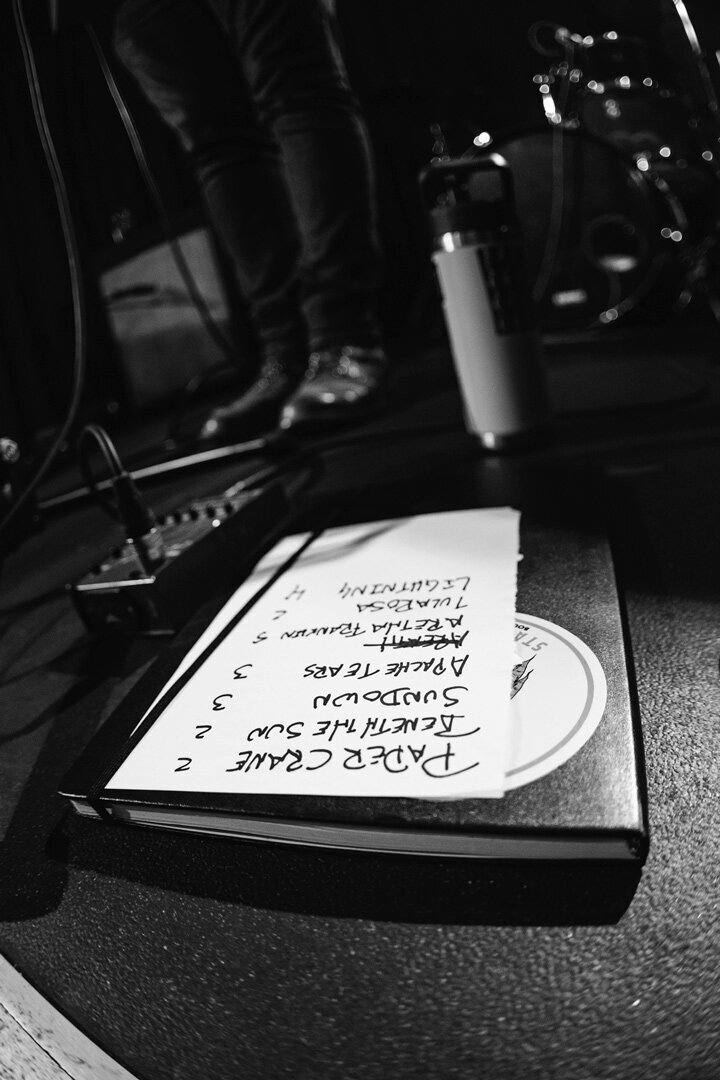 PAPER CRANE 2
BENETH THE SUN 2
SUNDOWN 3
APACHE TEARS 3
ARETHA FRANKEN 5
TULAROSA 2
LIGHTNING 4
STA